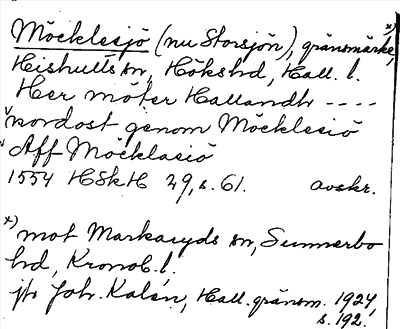 Möcklesjö (nu Storsjön), gränsmärke, x)
Hishults sn, Höks hd, Hall. l.
Her möter Hallandh ----
v nordost genom Möcklesiö
v Aff Möcklasiö
1554 HSkH 29, s. 61. avskr.
x) mot Markaryds sn, Sunnerbo
hd, Kronob. l.
jfr Joh. Kalén, Hall. gränsm. 1924,
s. 192.